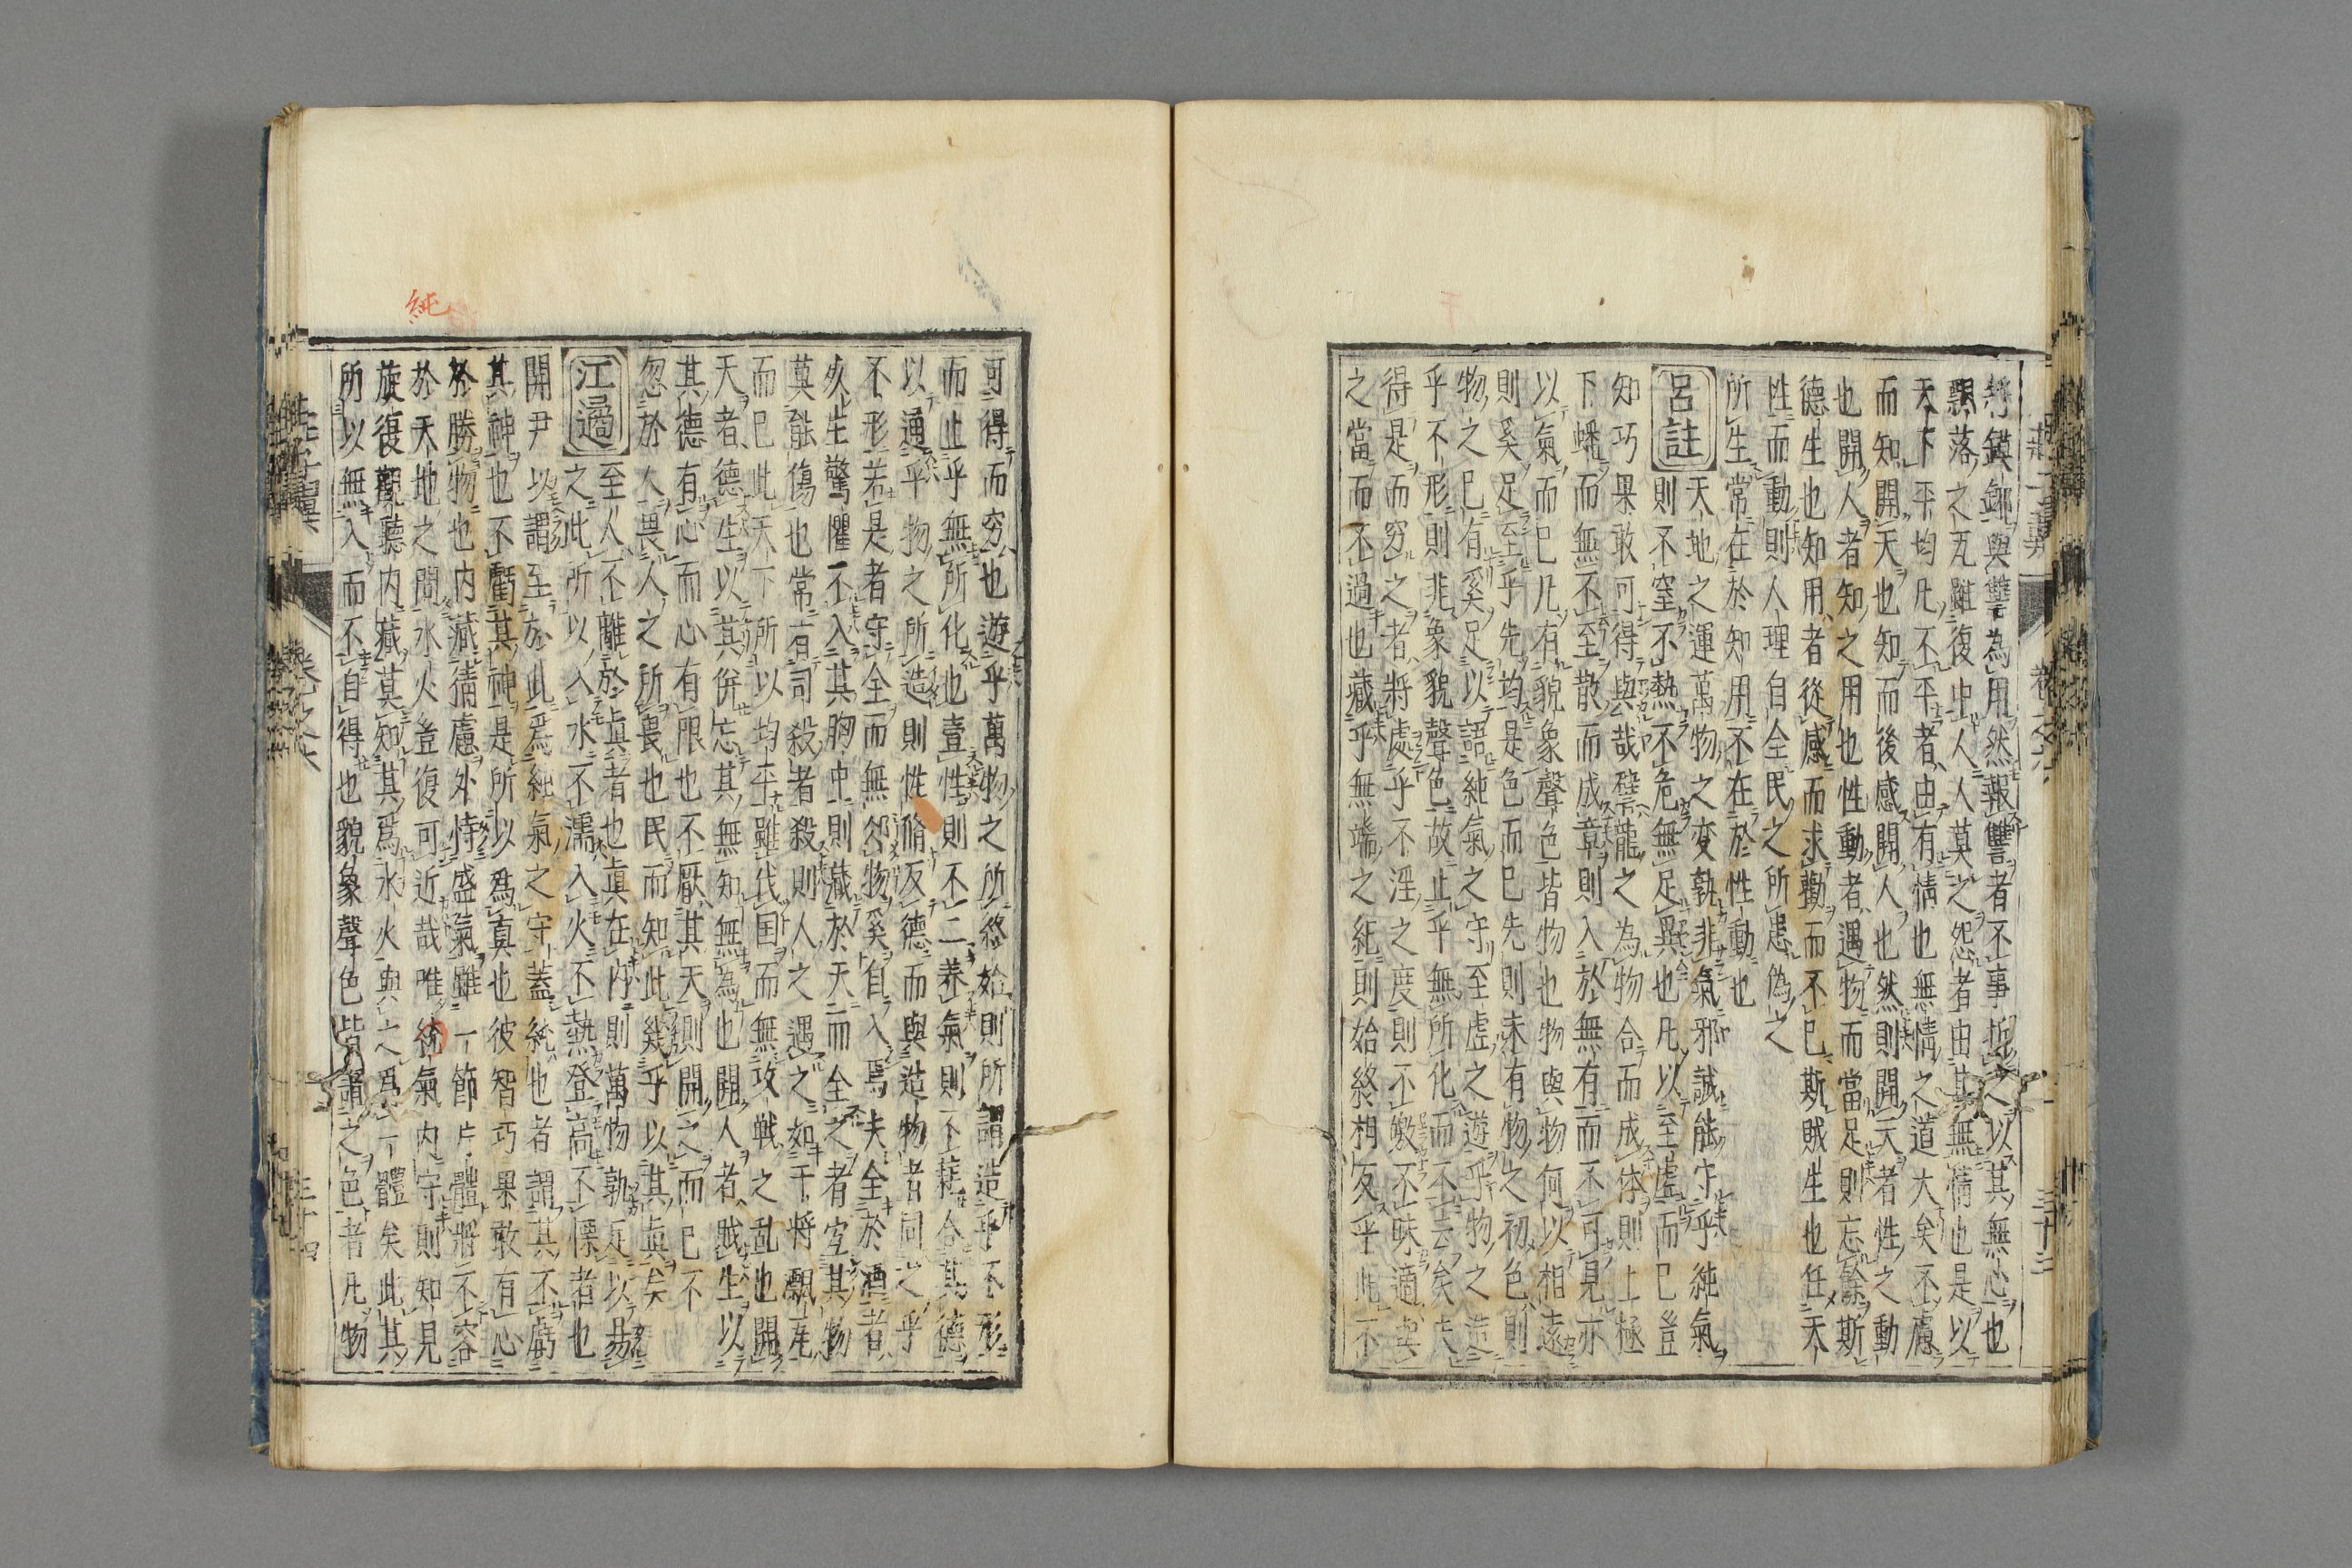 夫鏌鎁與讐為用然報讐者不事折之以其無心也
飄落之瓦雖復中人人莫之怨者由其無情也是以
天下平均凡不平者由有情也無情之道大矣不慮
而知開天也知而後感開人也然則開天者性之動
也開人者知之用也性動者遇物而當足則忘餘斯
德生也知用者從感而求勸而不已斯賊生也任天
性而動則人理自全民之所患偽之
所生常在於知用不在於性動也
呂註 天地之運萬物之変孰非氣邪誠能守乎純氣
則不窒不熱不危無足異也凡以至虛而已豈
知巧果敢可得與哉譬龍之為物合而成体則上極
下蟠而無不至散而成章則入於無有而不可見亦
以氣而已凡有貌象聲色皆物也物與物何以相遠
則奚足至乎先均是色而已先則未有物之初色則
物之已有奚足以語純氣之守至虛之遊乎物之造
乎不形則非象貌聲色故止乎無所化而不去矣夫
得是而窮之者將處乎不淫之度則不皦不昧適
之當而不過也藏乎無端之紀則始終相反乎此不
可得而窮也遊乎萬物之所終始則所謂造乎不形
而止乎無所化也壹性則不二養氣則不耗合其德
以通乎物之所造則性脩反德而與造物者同之乎
不形若是者守全而無郤物奚自入焉夫全於酒者
犮生驚懼不入其胸中則藏於天而全之者宜其物
莫能傷也常有司殺者殺則人之遇之如干將飄瓦
而已此天下所以均平雖伐国而無攻戦之乱也開
天者德生以其併忘其無知無為也開人者賊生以
其德有心而心有眼也不厭其天則開之而已不
忽於人畏人之所畏也民而知此幾乎以其真矣
江遹 至人不離於真者也真在内則萬物孰足以易
之此所以入水不濡入火不熱登高不慄者也
開尹以謂至於此焉純氣之守蓋純也者謂其不虧
其神也不虧其神是所以為真也彼智巧果敢有心
於勝物也内藏猜慮外恃盛氣雖一節片體將不容
於天地之間水火豈復可近哉唯純氣内守則知見
旋復觀聽内藏莫知其爲水火與之爲一體矣此其
所以無入而不自得也貌象聲色皆謂之色者凡物
純
卷之六
三十三
三十四